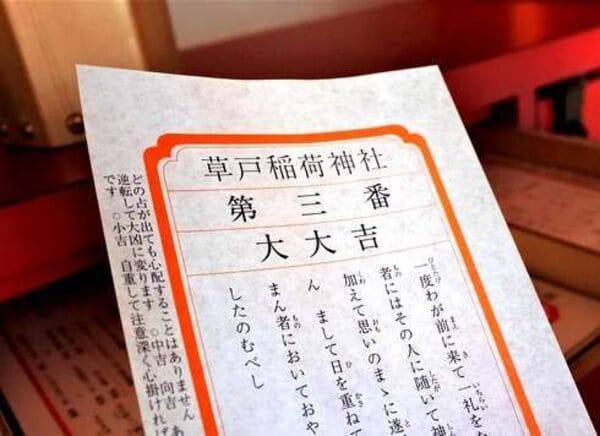 草戸稲荷神社
第三番
大大吉
一度わが前に来て一礼を
者にはその人に随いて神
加えて思いのまゝに遂
ん　まして日を重ねて
まん者においておや
したのむべし
どの占が出ても心配することはありません　あ
逆転して大凶に変ります　○中吉　向吉
です　○小吉　自重して注意深く心掛ければ